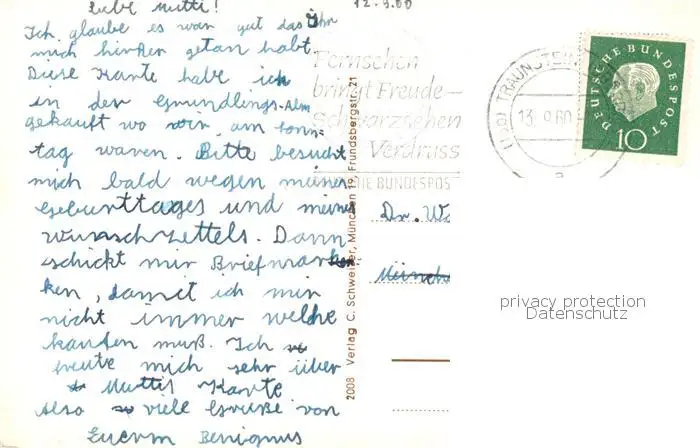 Liebe Mutti!
12.9.60
Ich glaube es war gut das Ihr
mich hinher getan habt
Diese Karte habe ich
in der Gmundlings-Alm
gekauft wo wir, am sonn=
tag waren. Bitte besucht
mich bald wegen meines
Geburttages und meines
Wunschzettels. Dann
schickt mir Briefmarken
ken, damit ich mir
nicht immer welche
kaufen muß. Ich
freute mich sehr über
Muttis Karte
Also viele Grüße von
Euerm Benignus
2008 Verlag C. Schweiner, München 19, Frundsbergstr. 21
Fernsehen
bringt Freude-
Schwarzsehen
Verdruss
DIE BUNDESPOS
TRAUNSTEIN
13.9.60
a
DEUTSCHE BUNDESPOST
10
Dr. W
Münch
privacy protection
Datenschutz